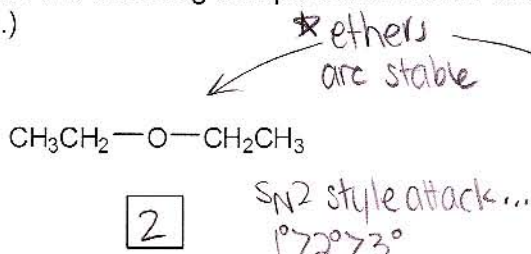 .)
* ethers
are stable
CH₃CH₂—O—CH₂CH₃
2
SN2 style attack...
1°>2°>3°